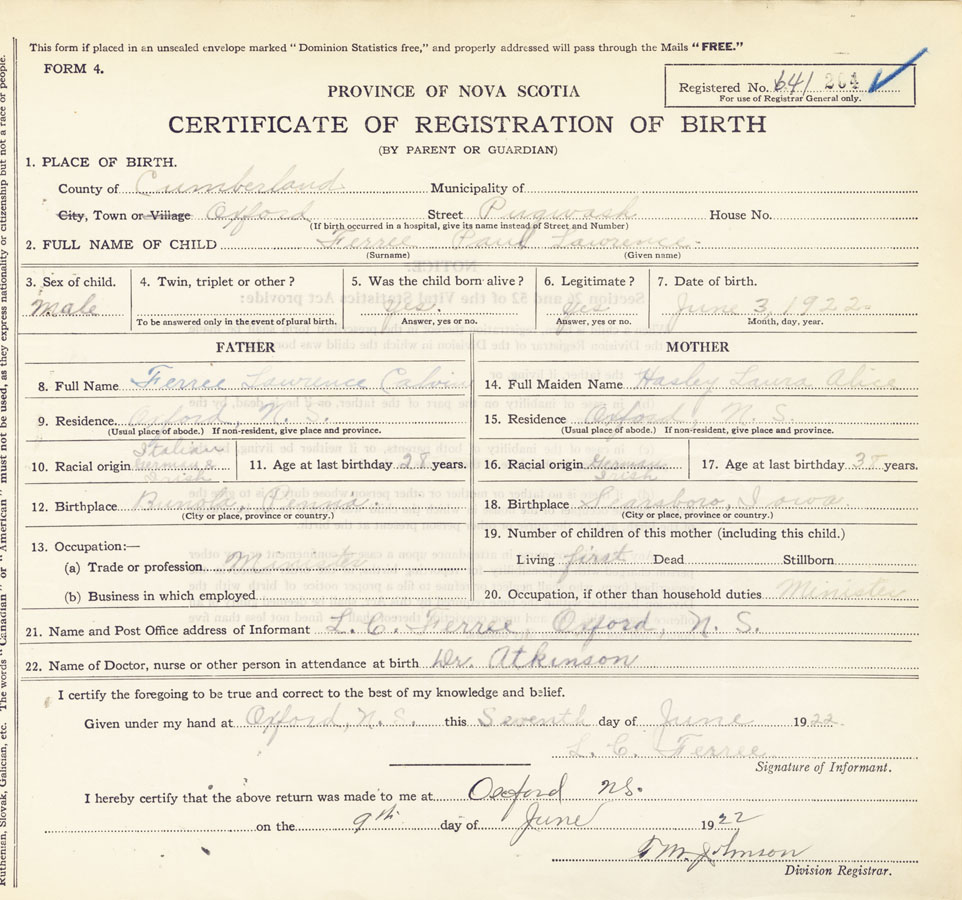 This form if placed in an unsealed envelope marked "Dominion Statistics free," and properly addressed will pass through the Mails "FREE."
FORM 4.
Registered No. 641 264
For use of Registrar General only.
PROVINCE OF NOVA SCOTIA
CERTIFICATE OF REGISTRATION OF BIRTH
(BY PARENT OR GUARDIAN)
1. PLACE OF BIRTH.
County of Cumberland Municipality of
City, Town or Village Oxford Street Pugwash House No.
(If birth occurred in a hospital, give its name instead of Street and Number)
2. FULL NAME OF CHILD Ferree Paul Lawrence
(Surname) (Given name)
3. Sex of child. 4. Twin, triplet or other? 5. Was the child born alive? 6. Legitimate? 7. Date of birth.
Male Yes. Yes June 3, 1922
To be answered only in the event of plural birth. Answer, yes or no. Answer, yes or no. Month, day, year.
FATHER MOTHER
8. Full Name Ferree Lawrence Calvin 14. Full Maiden Name Hasley Laura Alice
9. Residence Oxford, N. S. 15. Residence Oxford, N. S.
(Usual place of abode.) If non-resident, give place and province. (Usual place of abode.) If non-resident, give place and province.
Italian
10. Racial origin German & 11. Age at last birthday 28 years. 16. Racial origin German 17. Age at last birthday years.
Irish Irish
12. Birthplace Penna. 18. Birthplace Iowa
(City or place, province or country.) (City or place, province or country.)
13. Occupation:— 19. Number of children of this mother (including this child.)
(a) Trade or profession Minister Living first Dead Stillborn
(b) Business in which employed 20. Occupation, if other than household duties Minister
21. Name and Post Office address of Informant L. C. Ferree, Oxford, N. S.
22. Name of Doctor, nurse or other person in attendance at birth Dr. Atkinson
I certify the foregoing to be true and correct to the best of my knowledge and belief.
Given under my hand at Oxford, N. S. this Seventh day of June 1922.
L. C. Ferree
Signature of Informant.
I hereby certify that the above return was made to me at Oxford NS.
on the 9th day of June 1922
Johnson
Division Registrar.
Ruthenian, Slovak, Galician, etc. The words "Canadian" or "American" must not be used, as they express nationality or citizenship but not a race or people.